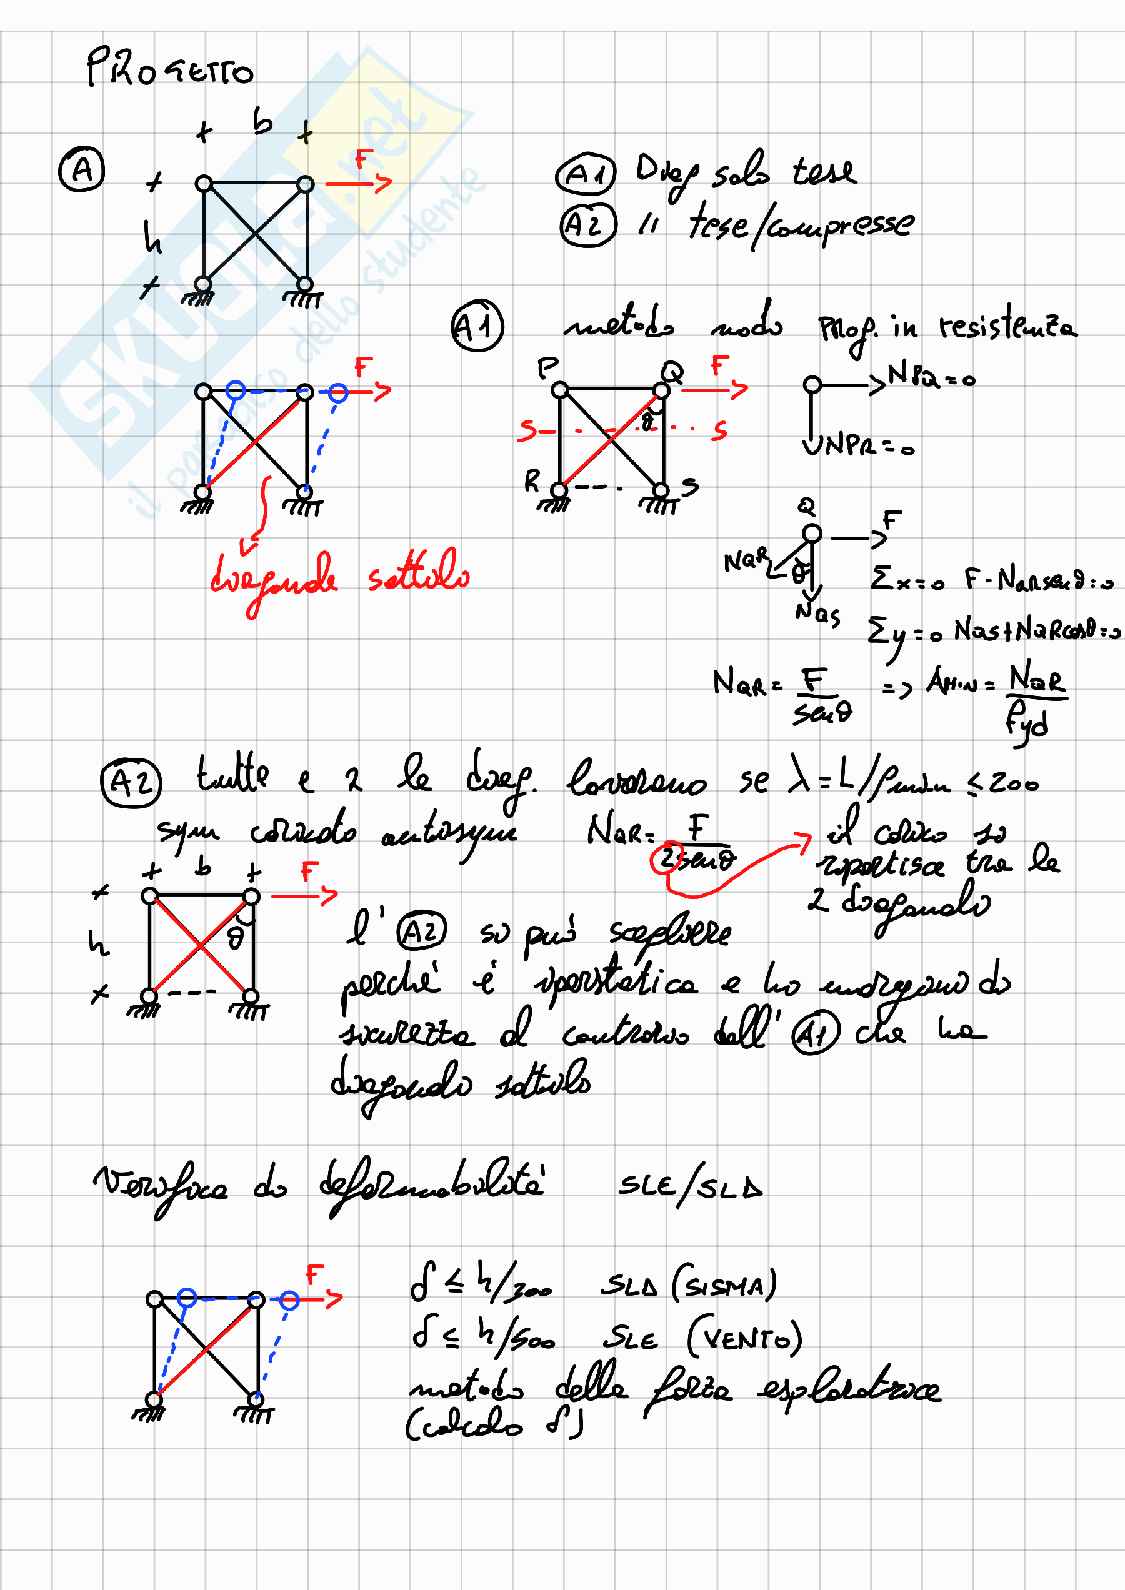 PROGETTO
+ b +
A
F
h
A1 Diag solo tese
A2 " tese/compresse
A1 metodo nodo prog. in resistenza
F
diagonale sottile
P Q F
S S
θ
R S
NPQ=0
NPR=0
Q
F
NQR
θ
NQS
Σx=0 F-NQRsenθ=0
Σy=0 NQS+NQRcosθ=0
NQR = F/senθ => AMIN = NQR/fyd
A2 tutte e 2 le diag. lavorano se λ=L/ρmin ≤200
sym caricato antisym NQR = F/2senθ
il carico si
ripartisce tra le
2 diagonali
+ b +
F
h
θ
l'A2 si può scegliere
perché é iperstatica e ho margini di
sicurezza al contrario dell'A1 che ha
diagonali sottili
Verifica di deformabilità SLE/SLD
F
δ ≤ h/300 SLD (SISMA)
δ ≤ h/500 SLE (VENTO)
metodo della forza esploratrice
(calcolo δ)
SKUOLA.net
il paradiso dello studente